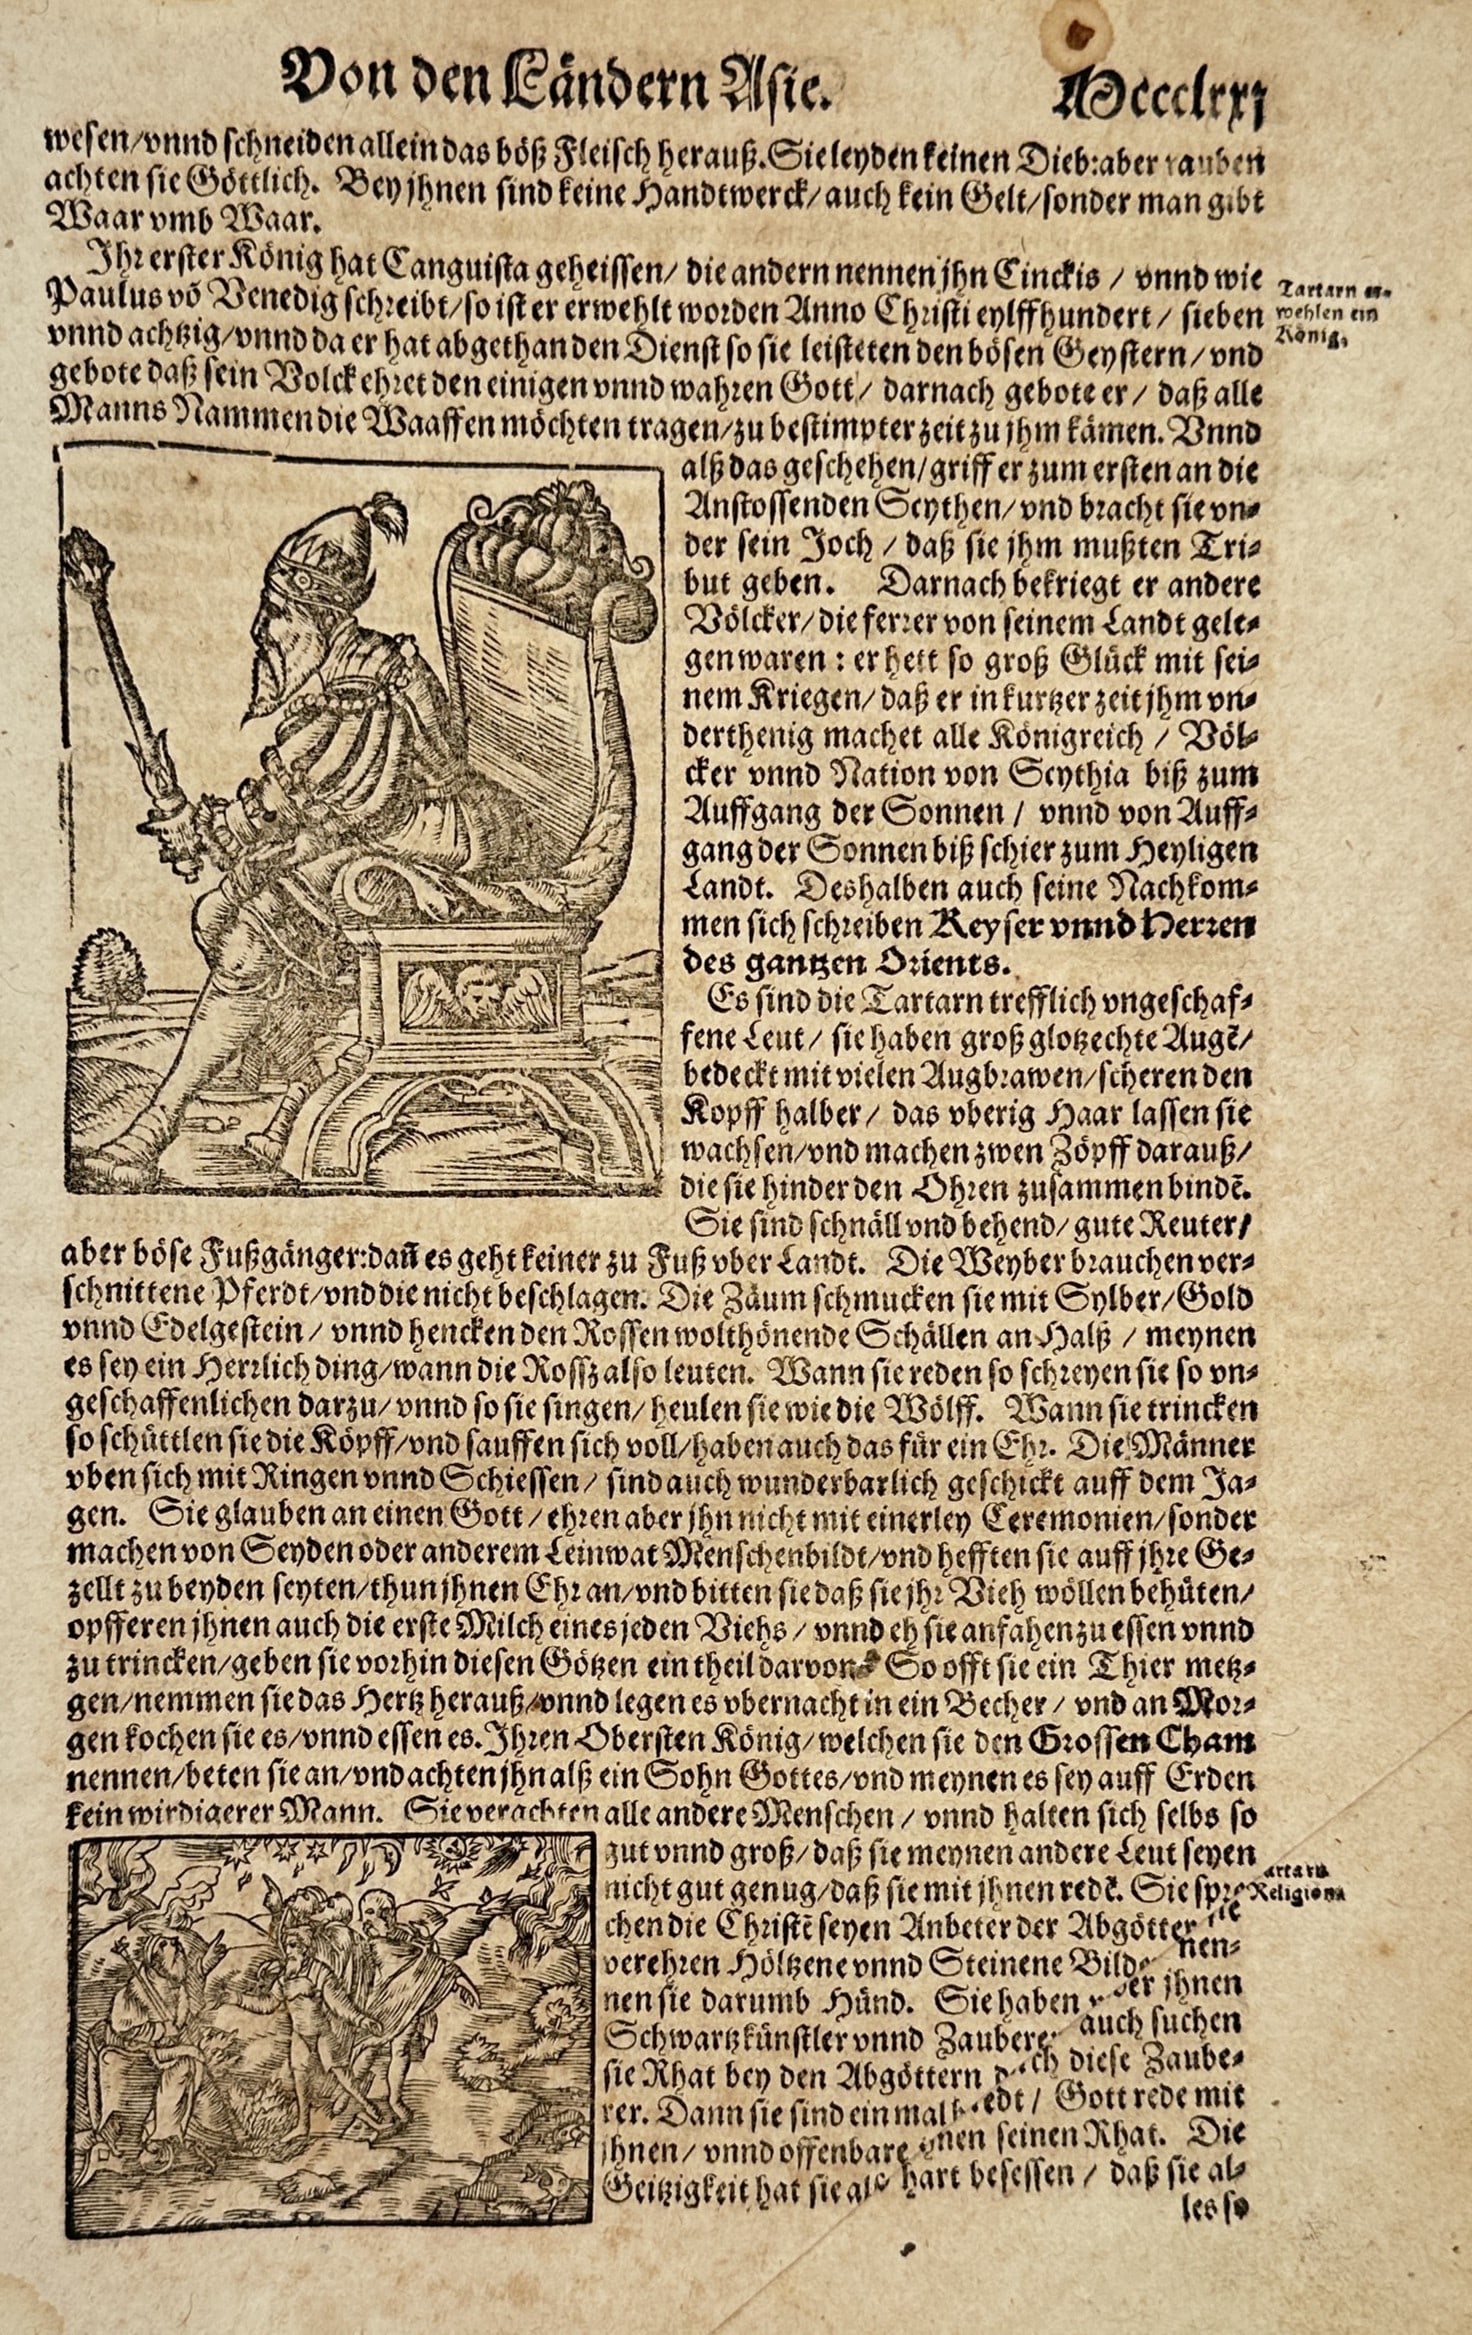 Von den Ländern Asie. Mcccclxxj
wesen/vnnd schneiden allein das böß Fleisch herauß. Sie leyden keinen Dieb: aber rauben
achten sie Göttlich. Bey jhnen sind keine Handtwerck/ auch kein Gelt/sonder man gibt
Waar vmb Waar.
Ihr erster König hat Canguista geheissen/ die andern nennen jhn Cinckis / vnnd wie
Paulus vō Venedig schreibt/so ist er erwehlt worden Anno Christi eylffhundert / sieben
vnnd achtzig/vnnd da er hat abgethan den Dienst so sie leisteten den bösen Geystern/ vnd
gebote daß sein Volck ehret den einigen vnnd wahren Gott/ darnach gebote er / daß alle
Manns Nammen die Waaffen möchten tragen/zu bestimpter zeit zu jhm kämen. Vnnd
Tartarn er-
wehlen ein
König.
alß das geschehen/griff er zum ersten an die
Anstossenden Scythen/ vnd bracht sie vn-
der sein Joch / daß sie jhm mußten Tri-
but geben. Darnach bekriegt er andere
Völcker/die ferrer von seinem Landt gele-
gen waren : er hett so groß Glück mit sei-
nem Kriegen/ daß er in kurtzer zeit jhm vn-
derthenig machet alle Königreich / Völ-
cker vnnd Nation von Scythia biß zum
Auffgang der Sonnen / vnnd von Auff-
gang der Sonnen biß schier zum Heyligen
Landt. Deshalben auch seine Nachkom-
men sich schreiben Keyser vnnd Herren
des gantzen Orients.
Es sind die Tartarn trefflich vngeschaf-
fene Leut/ sie haben groß glotzechte Augē/
bedeckt mit vielen Augbrawen/scheren den
Kopff halber/ das vberig Haar lassen sie
wachsen/vnd machen zwen Zöpff darauß/
die sie hinder den Ohren zusammen bindē.
Sie sind schnäll vnd behend/ gute Reuter/
aber böse Fußgänger: dañ es geht keiner zu Fuß vber Landt. Die Weyber brauchen ver-
schnittene Pferdt/vnd die nicht beschlagen. Die Zäum schmucken sie mit Sylber/Gold
vnnd Edelgestein / vnnd hencken den Rossen wolthönende Schällen an Halß / meynen
es sey ein Herrlich ding/wann die Rossz also leuten. Wann sie reden so schreyen sie so vn-
geschaffenlichen darzu/ vnnd so sie singen/ heulen sie wie die Wölff. Wann sie trincken
so schüttlen sie die Köpff/vnd sauffen sich voll/haben auch das für ein Ehr. Die Männer
vben sich mit Ringen vnnd Schiessen / sind auch wunderbarlich geschickt auff dem Ja-
gen. Sie glauben an einen Gott / ehren aber jhn nicht mit einerley Ceremonien/sonder
machen von Seyden oder anderem Leinwat Menschenbildt/vnd hefften sie auff jhre Ge-
zellt zu beyden seyten/thun jhnen Ehr an/vnd bitten sie daß sie jhr Vieh wöllen behüten/
opfferen jhnen auch die erste Milch eines jeden Viehs / vnnd eh sie anfahen zu essen vnnd
zu trincken/geben sie vorhin diesen Götzen ein theil darvon. So offt sie ein Thier metz-
gen/nemmen sie das Hertz herauß/vnnd legen es vbernacht in ein Becher / vnd an Mor-
gen kochen sie es/vnnd essen es. Ihren Obersten König/welchen sie den Grossen Cham
nennen/beten sie an/vnd achten jhn alß ein Sohn Gottes/vnd meynen es sey auff Erden
kein wirdigerer Mann. Sie verachten alle andere Menschen / vnnd halten sich selbs so
gut vnnd groß/daß sie meynen andere Leut seyen
nicht gut genug/daß sie mit jhnen redē. Sie spre
chen die Christē seyen Anbeter der Abgötter
verehren Höltzene vnnd Steinene Bild nen-
nen sie darumb Hünd. Sie haben jhnen
Schwartzkünstler vnnd Zauberer auch suchen
sie Rhat bey den Abgöttern diese Zaube-
rer. Dann sie sind einmal Gott rede mit
jhnen/ vnnd offenbare jhnen seinen Rhat. Die
Geitzigkeit hat sie als hart besessen / daß sie al-
les so
Religion